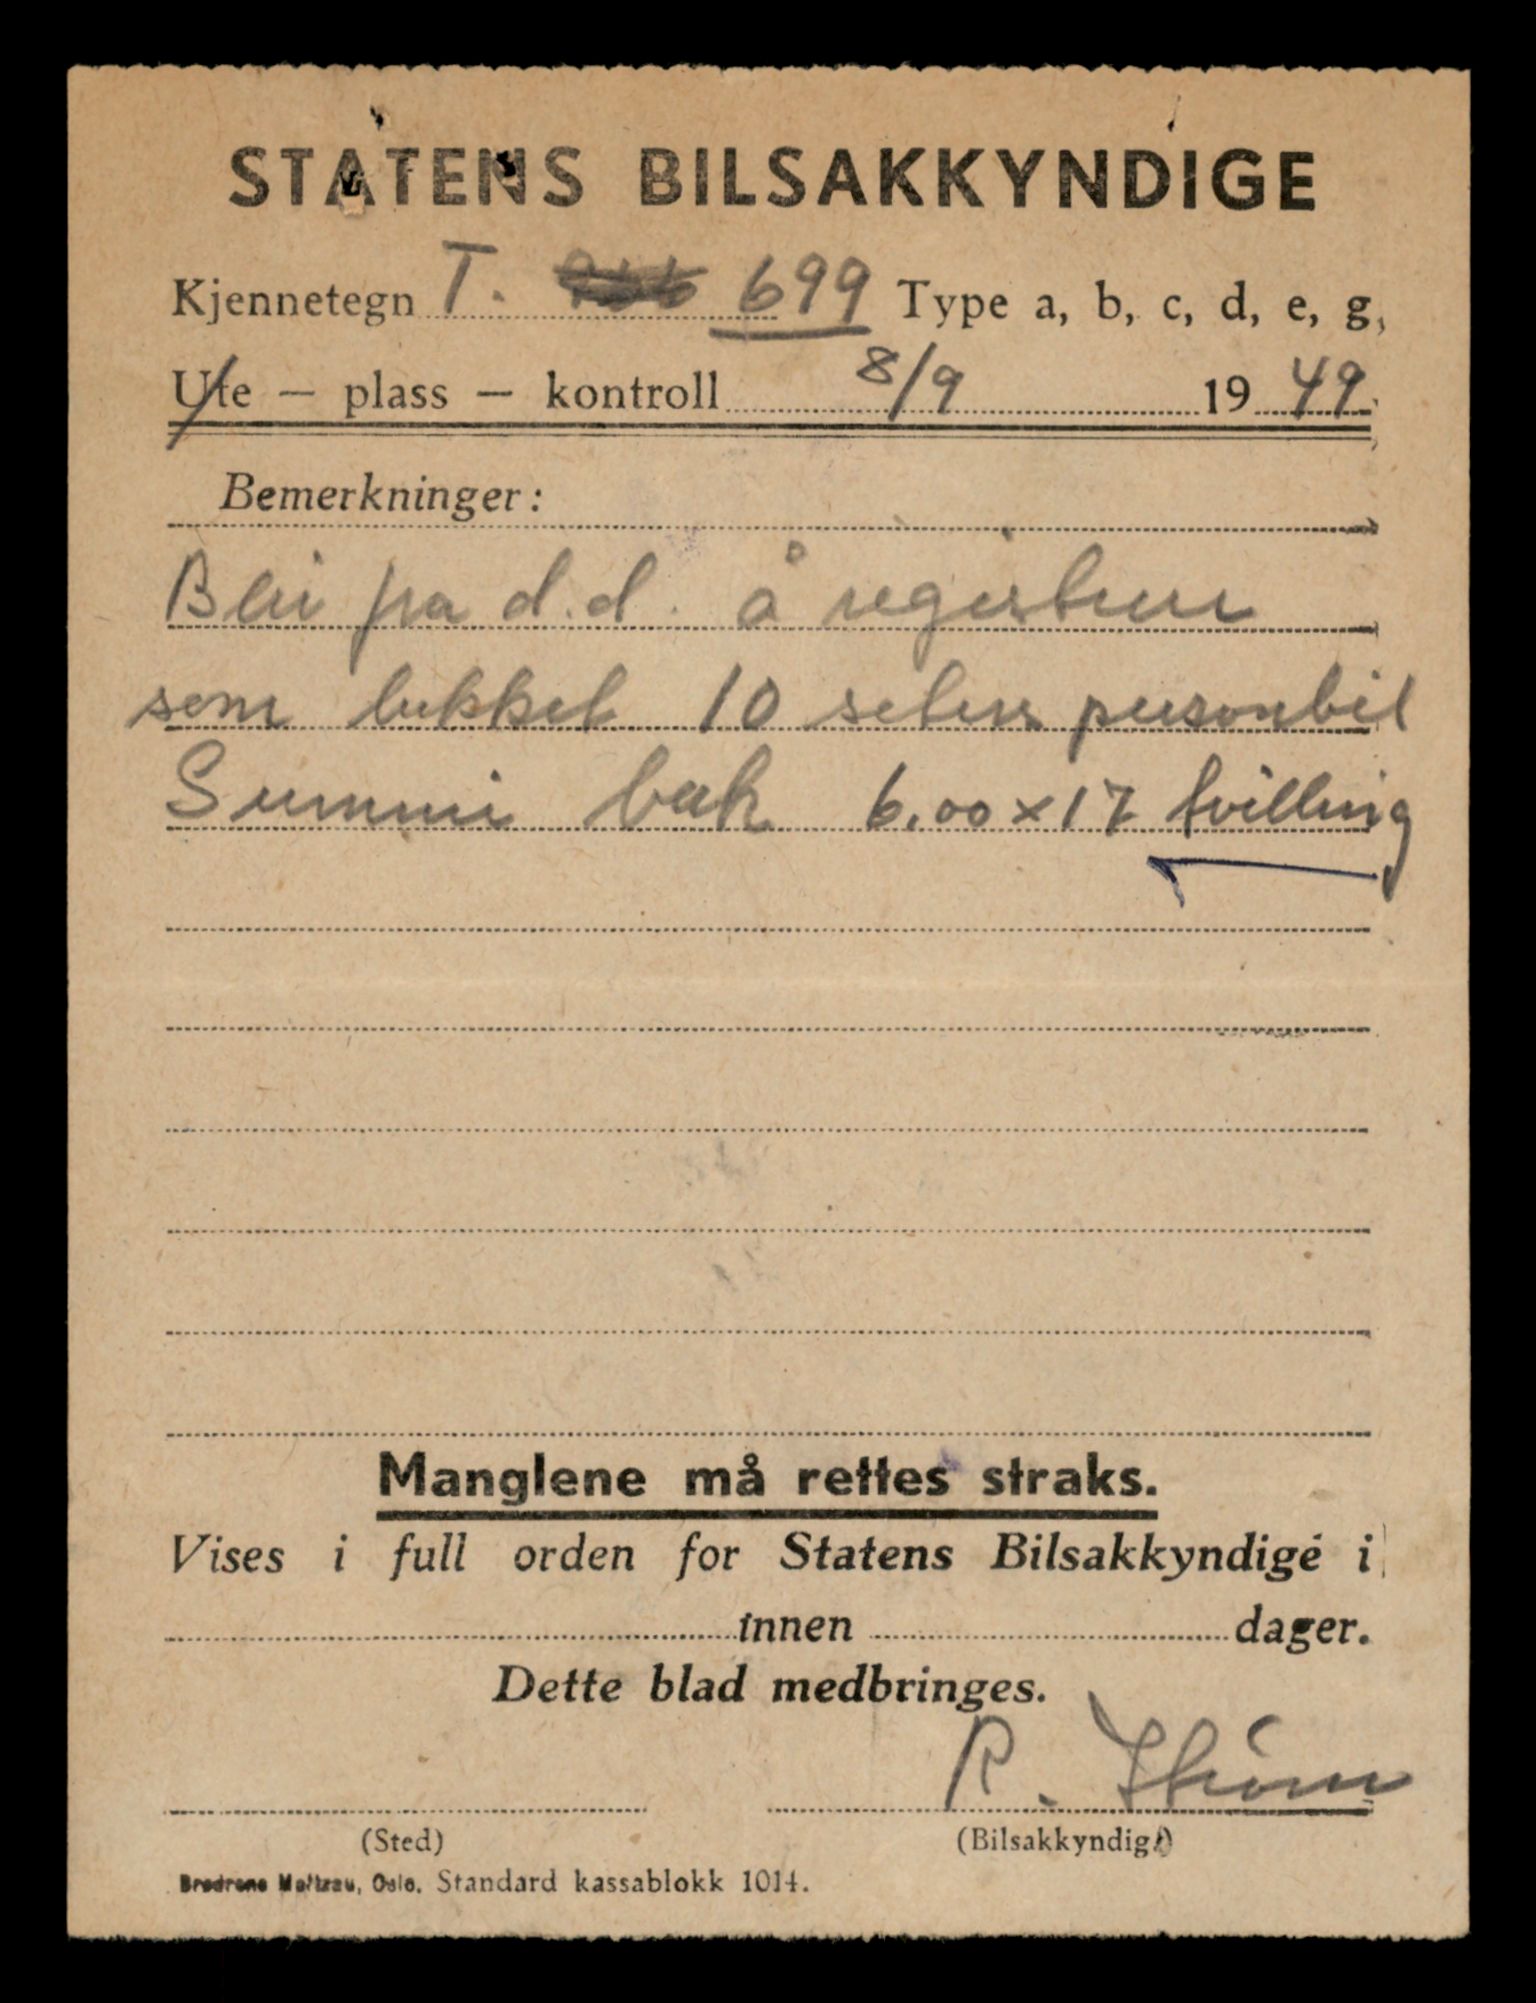 STATENS BILSAKKYNDIGE
Kjennetegn T. 699 Type a, b, c, d, e, g,
Ute — plass — kontroll 8/9 1949
Bemerkninger:
Blir fra d.d. å registrere
som lukket 10 seters personbil
Gummi bak 6,00 x 17 tvilling
Manglene må rettes straks.
Vises i full orden for Statens Bilsakkyndige i
innen dager.
Dette blad medbringes.
R. Strøm
(Sted) (Bilsakkyndig)
Brødrene Maltzau, Oslo. Standard kassablokk 1014.